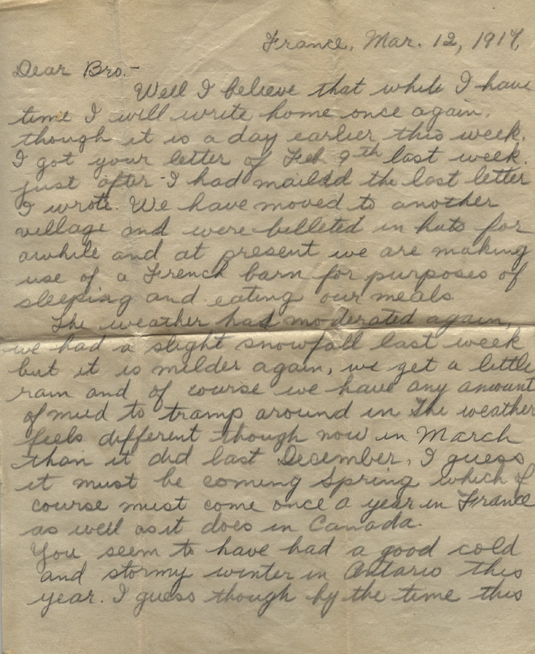 France, Mar. 12, 1917
Dear Bro.-
Well I believe that while I have
time I will write home once again,
though it is a day earlier this week.
I got your letter of Feb. 9th last week.
just after I had maildd the last letter
I wrote. We have moved to another
village and were billeted in huts for
awhile and at present we are making
use of a French barn for purposes of
sleeping and eating our meals
The weather had moderated again,
we had a slight snowfall last week
but it is milder again, we get a little
rain and of course we have any amount
of mud to tramp around in The weather
feels different though now in March
than it did last December, I guess
it must be coming Spring which of
course must come once a year in France
as well as it does in Canada.
You seem to have had a good cold
and stormy winter in Ontario this
year. I guess though by the time this